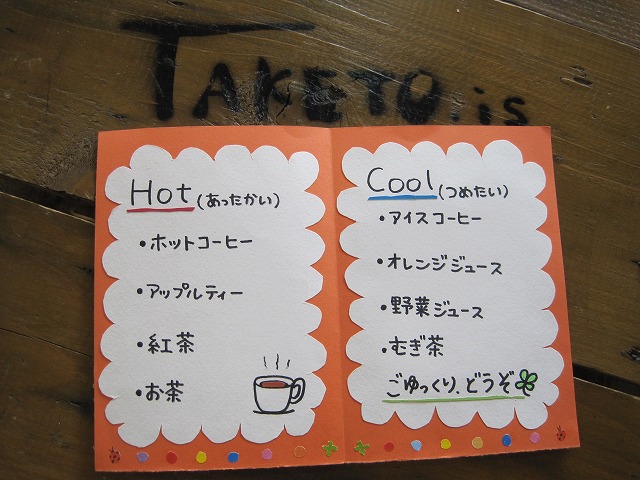 TAKETO.is
Hot(あったかい)
・ホットコーヒー
・アップルティー
・紅茶
・お茶
Cool(つめたい)
・アイスコーヒー
・オレンジジュース
・野菜ジュース
・むぎ茶
ごゆっくり、どうぞ